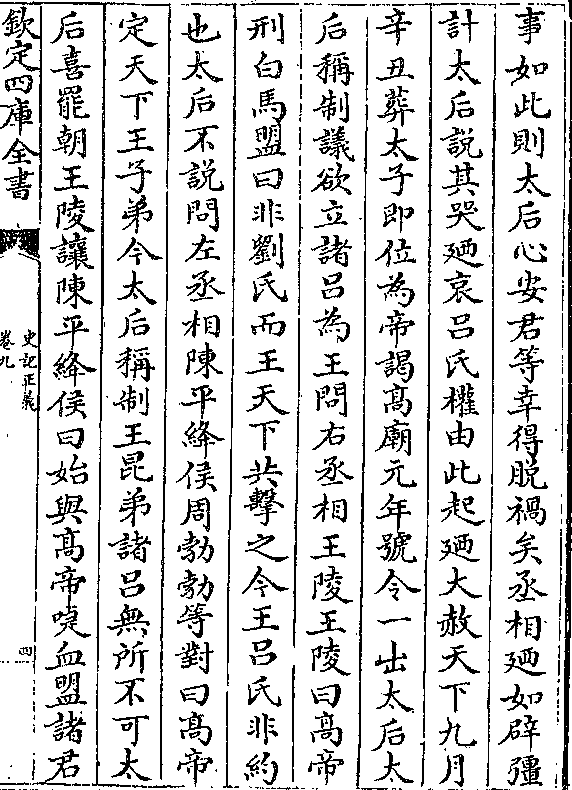 事如此則太后心安君等幸得脫禍矣丞相廼如辟彊
計太后說其哭廼哀呂氏權由此起廼大赦天下九月
辛丑葬太子即位為帝謁髙廟元年號令一出太后太
后稱制議欲立諸呂為王問右丞相王陵王陵曰髙帝
刑白馬盟曰非劉氏而王天下共擊之今王呂氏非約
也太后不說問左丞相陳平絳侯周勃勃等對曰髙帝
定天下王子弟今太后稱制王昆弟諸呂無所不可太
后喜罷朝王陵讓陳平絳侯曰始與髙帝啑血盟諸君
欽定四庫全書
史記正義
卷九
四